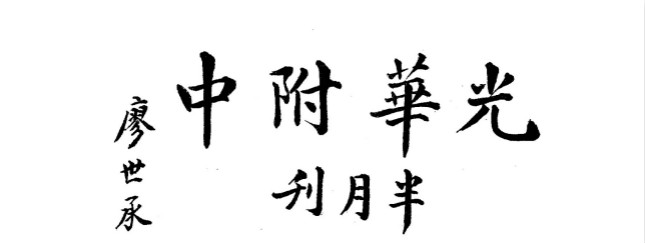 光華附中
半月刊
廖世承